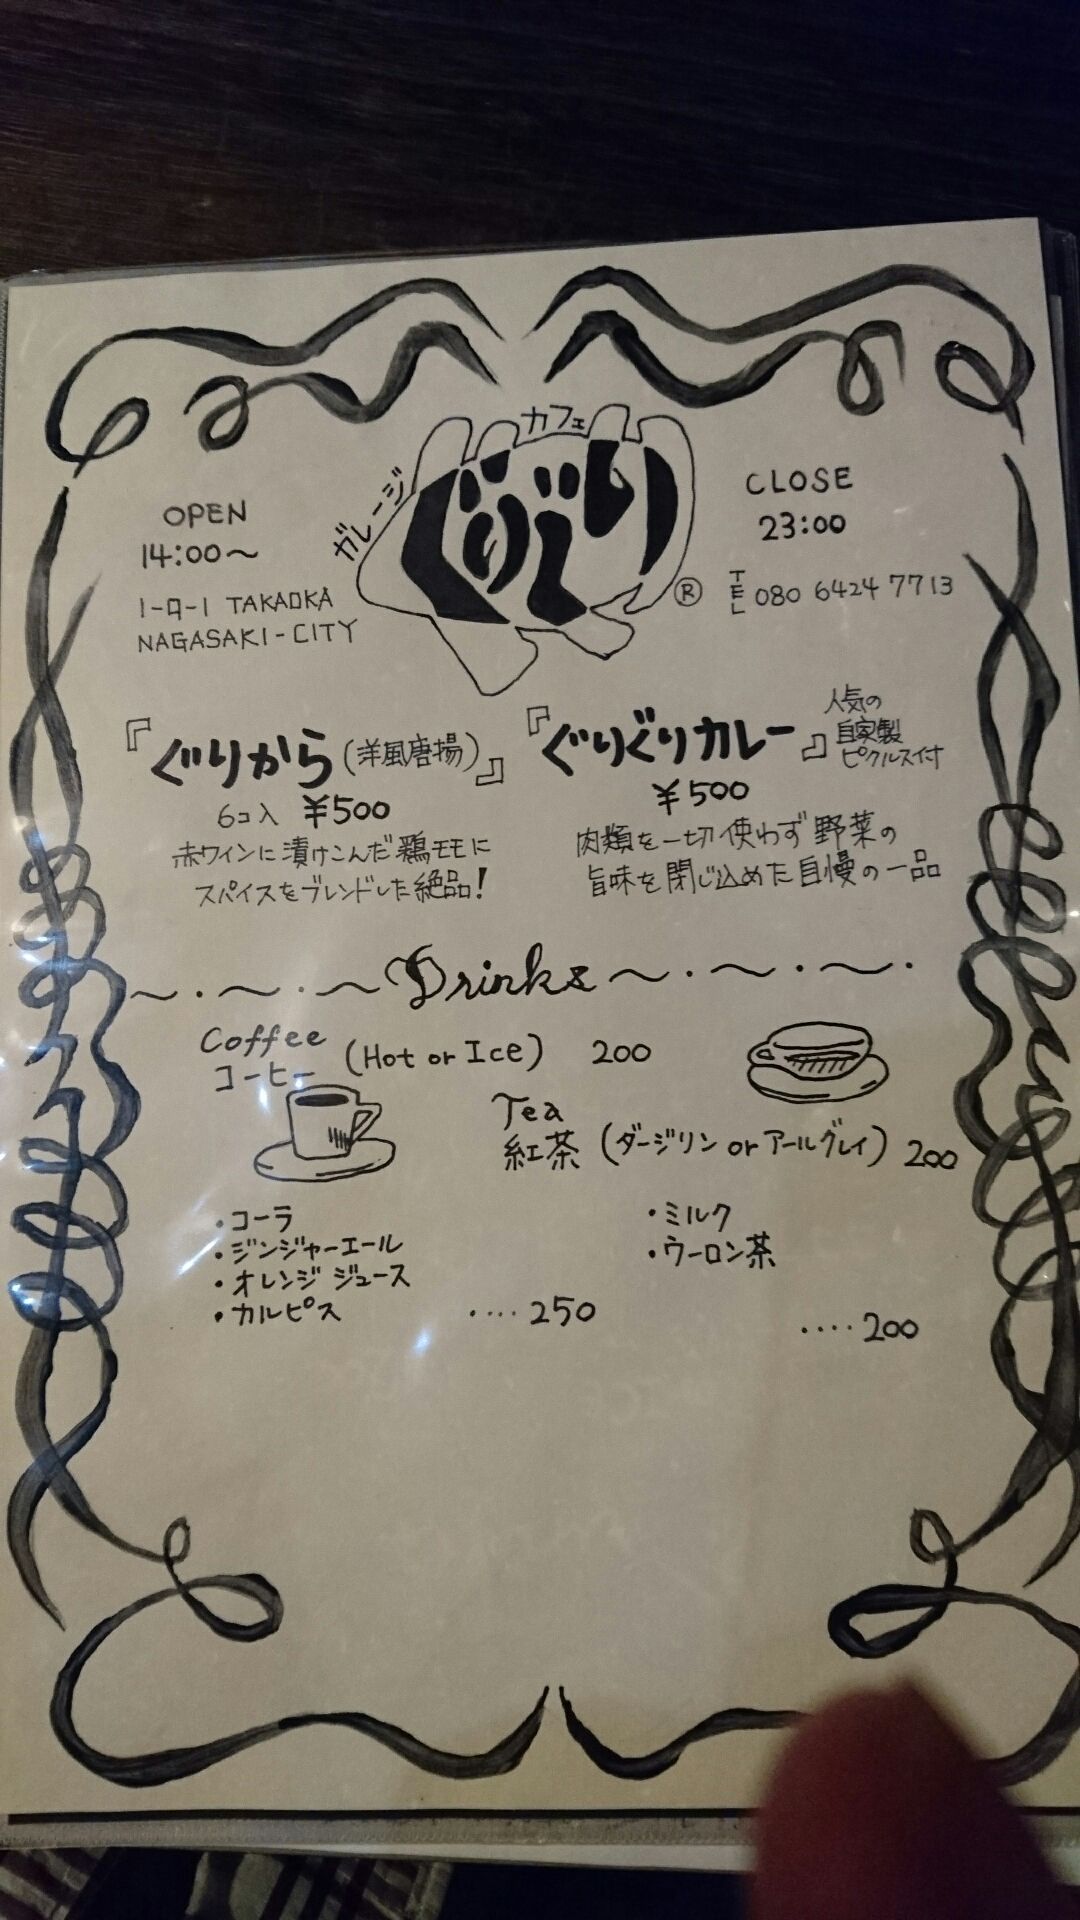 ガレージ
カフェ
ぐりぐり
®
OPEN
14:00〜
1-9-1 TAKAOKA
NAGASAKI-CITY
CLOSE
23:00
TEL 080 6424 7713
『ぐりから(洋風唐揚)』
6コ入 ¥500
赤ワインに漬けこんだ鶏モモに
スパイスをブレンドした絶品!
『ぐりぐりカレー』
人気の
自家製
ピクルス付
¥500
肉類を一切使わず野菜の
旨味を閉じ込めた自慢の一品
〜・〜・〜Drinks〜・〜・〜・
Coffee
コーヒー (Hot or Ice) 200
Tea
紅茶 (ダージリン or アールグレイ) 200
・コーラ
・ジンジャーエール
・オレンジジュース
・カルピス ‥‥250
・ミルク
・ウーロン茶
‥‥200